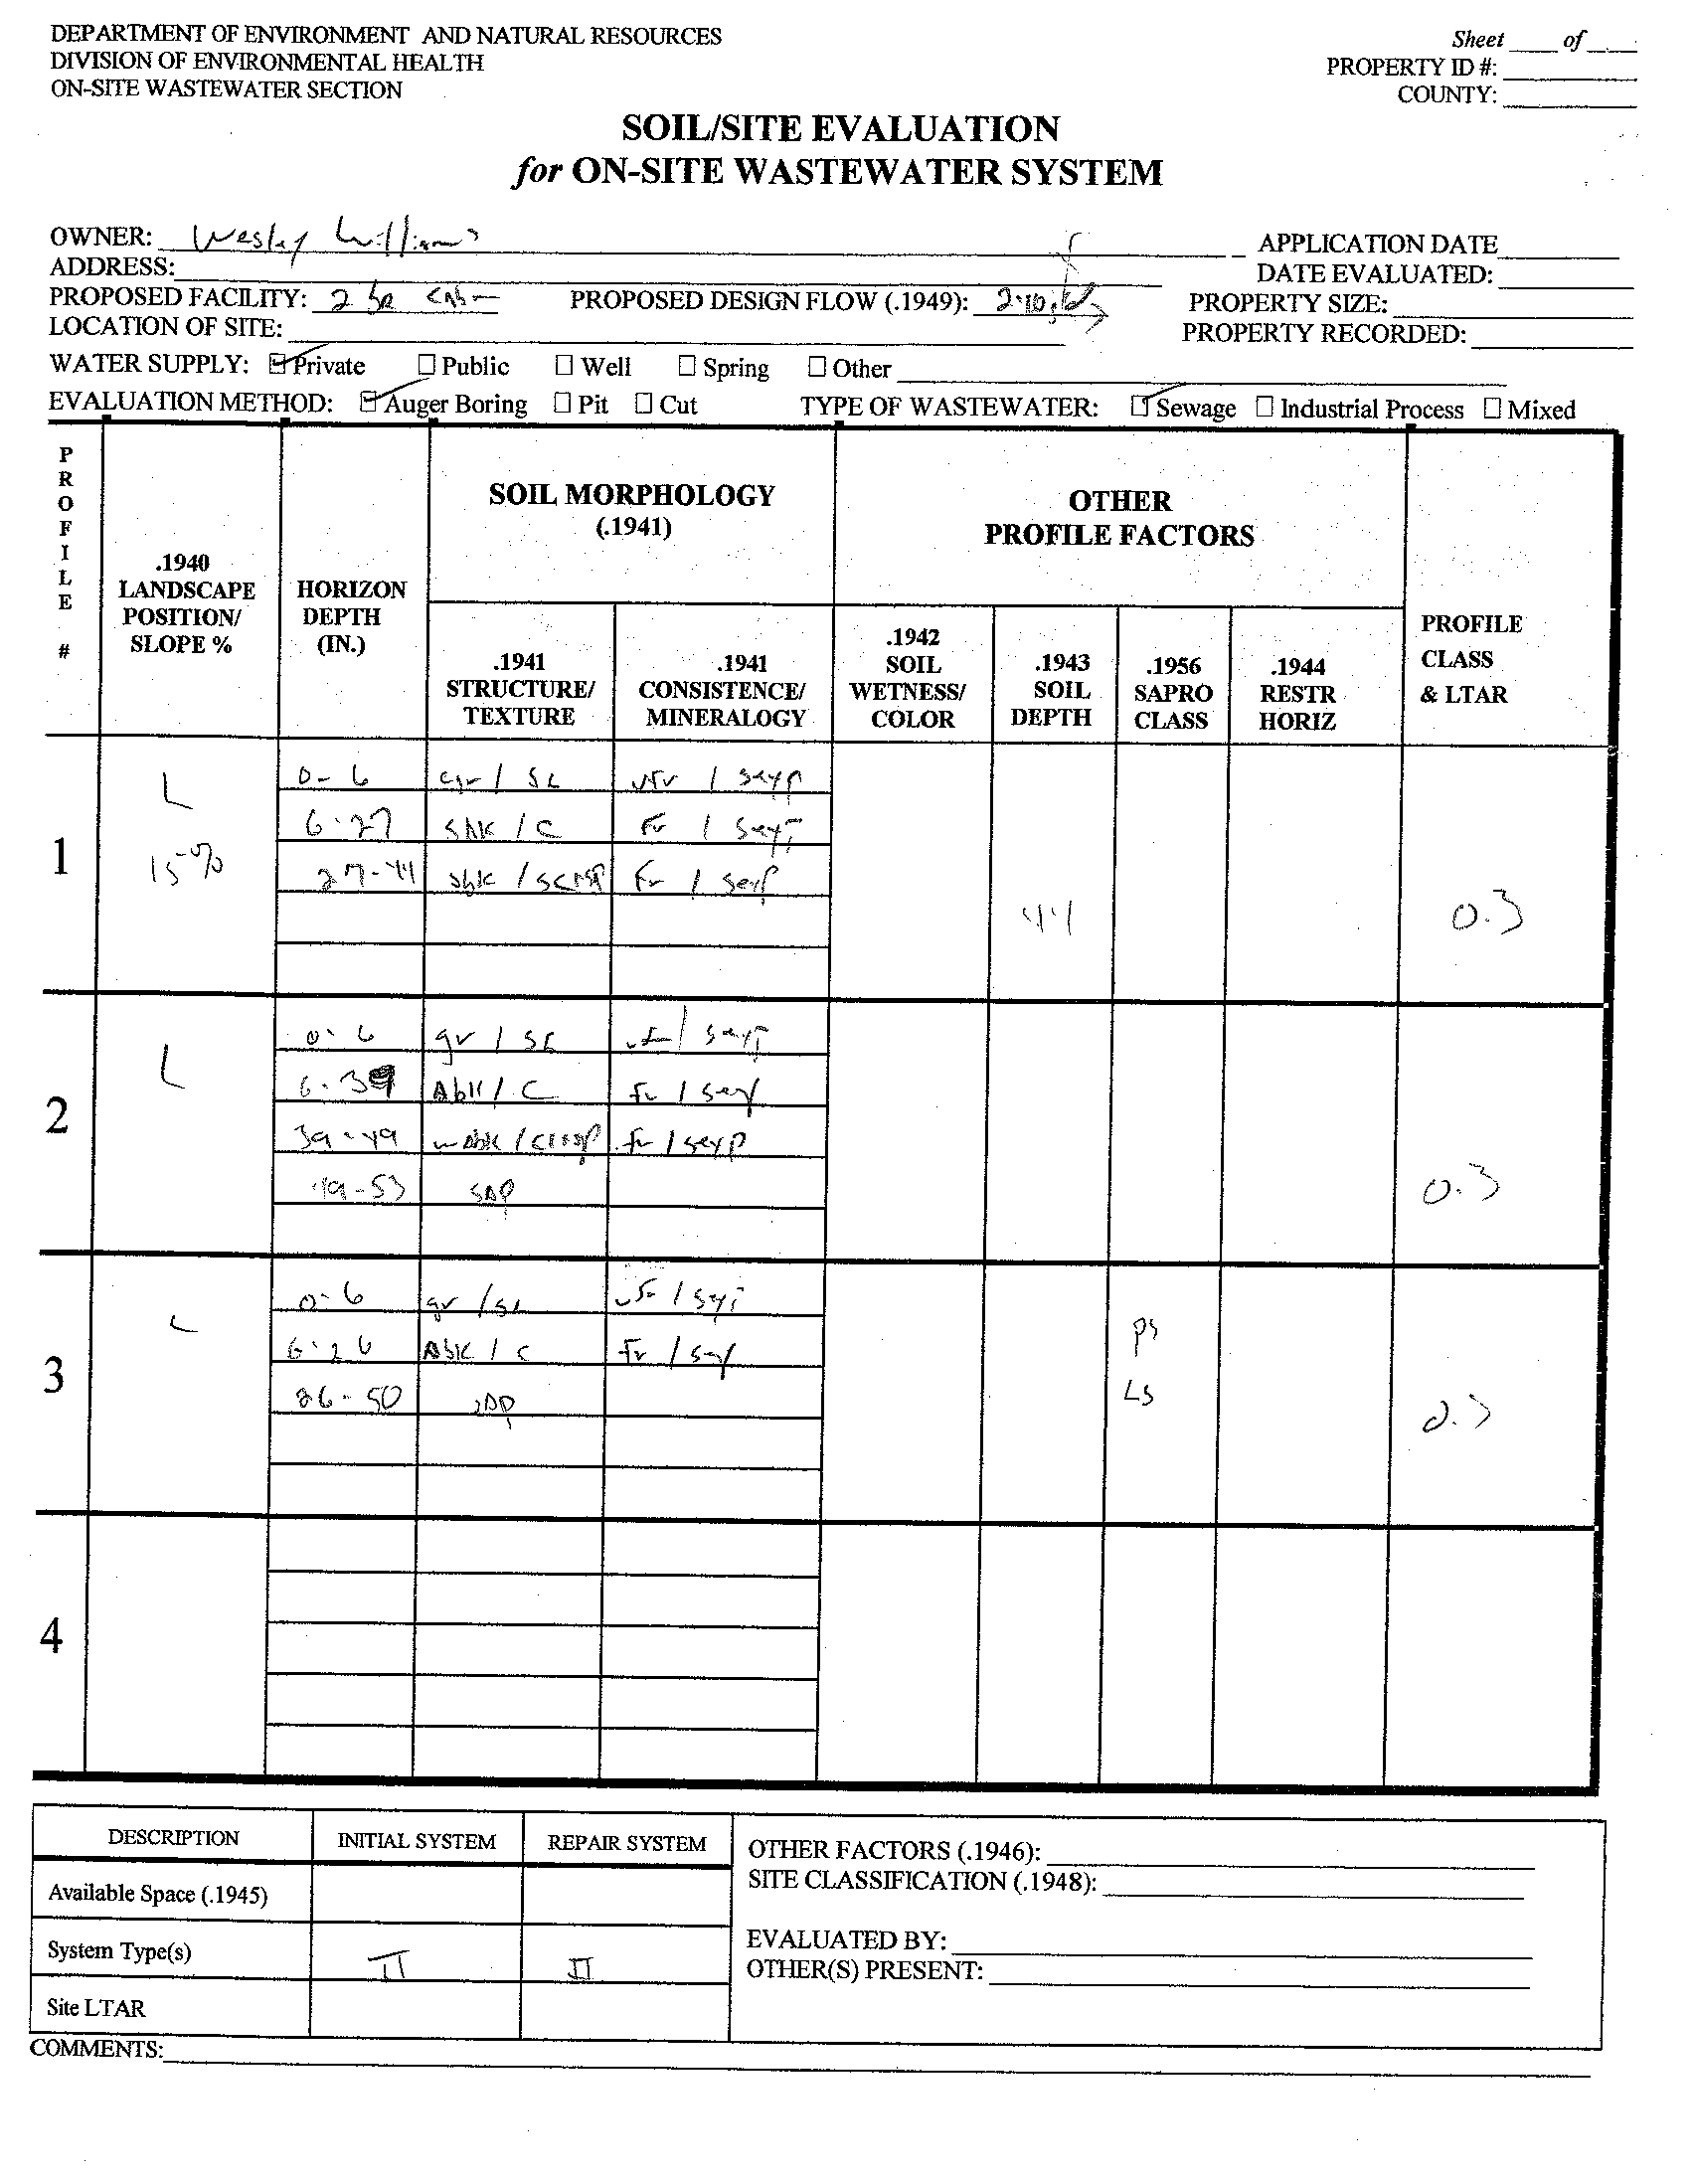 DEPARTMENT OF ENVIRONMENT AND NATURAL RESOURCES
DIVISION OF ENVIRONMENTAL HEALTH
ON-SITE WASTEWATER SECTION
Sheet ____ of ____
PROPERTY ID #:
COUNTY:
SOIL/SITE EVALUATION
for ON-SITE WASTEWATER SYSTEM
OWNER: Wesley Williams
APPLICATION DATE
ADDRESS:
DATE EVALUATED:
PROPOSED FACILITY: 2 BR PROPOSED DESIGN FLOW (.1949):
PROPERTY SIZE:
LOCATION OF SITE:
PROPERTY RECORDED:
WATER SUPPLY: ☑ Private ☐ Public ☐ Well ☐ Spring ☐ Other
EVALUATION METHOD: ☑ Auger Boring ☐ Pit ☐ Cut TYPE OF WASTEWATER: ☑ Sewage ☐ Industrial Process ☐ Mixed
PROFILE #
.1940 LANDSCAPE POSITION/ SLOPE %
HORIZON DEPTH (IN.)
SOIL MORPHOLOGY (.1941)
.1941 STRUCTURE/ TEXTURE
.1941 CONSISTENCE/ MINERALOGY
OTHER PROFILE FACTORS
.1942 SOIL WETNESS/ COLOR
.1943 SOIL DEPTH
.1956 SAPRO CLASS
.1944 RESTR HORIZ
PROFILE CLASS & LTAR
1 L 15%
0-6 gr / SL vfr / sexp
6-27 sbk / C Fr / sexp
27-44 sbk / Fr / sexp
44 0.3
2 L
0-6 gr / SL vfr / sexp
6-39 Abk / C Fr / sexp
39-49 Fr / sexp
49-53 SAP
0.3
3 L
0-6 gr / SL vfr / sexp
6-26 Abk / C Fr / sexp
26-50 SAP
PS
LS
0.3
4
DESCRIPTION INITIAL SYSTEM REPAIR SYSTEM
Available Space (.1945)
System Type(s) II II
Site LTAR
OTHER FACTORS (.1946):
SITE CLASSIFICATION (.1948):
EVALUATED BY:
OTHER(S) PRESENT:
COMMENTS: